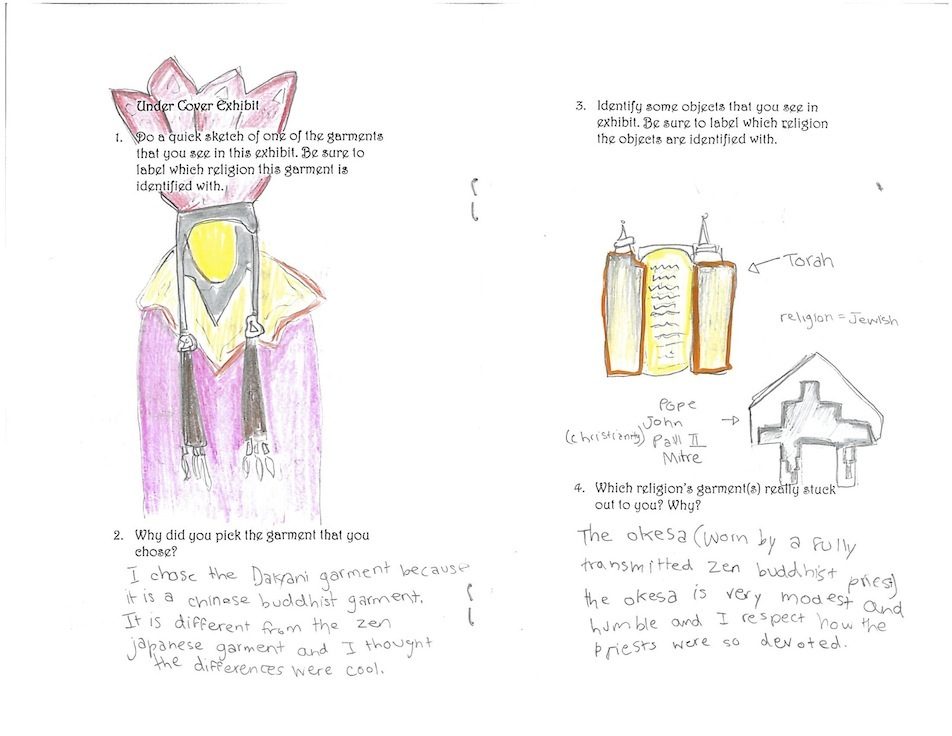 Under Cover Exhibit
1. Do a quick sketch of one of the garments
that you see in this exhibit. Be sure to
label which religion this garment is
identified with.
2. Why did you pick the garment that you
chose?
I chose the Dakyani garment because
it is a chinese buddhist garment.
It is different from the zen
japanese garment and I thought
the differences were cool.
3. Identify some objects that you see in
exhibit. Be sure to label which religion
the objects are identified with.
Torah
religion = Jewish
Pope
John
(christianity) Paul II
Mitre
4. Which religion's garment(s) really stuck
out to you? Why?
The okesa (worn by a fully
transmitted zen buddhist priest)
the okesa is very modest and
humble and I respect how the
priests were so devoted.